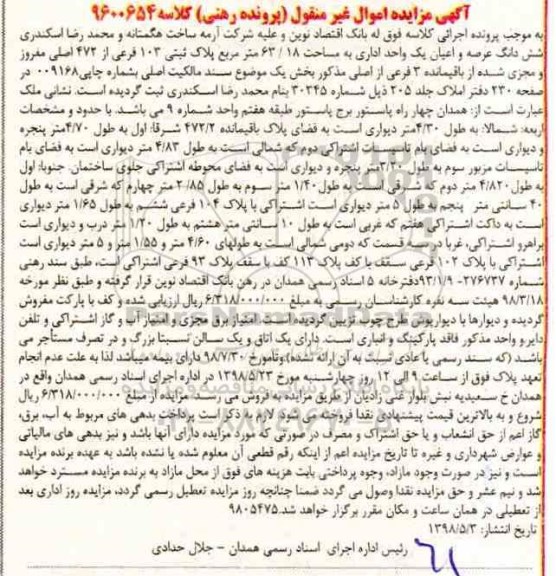 آگهی مزایده اموال غیر منقول (پرونده رهنی) کلاسه ۹۶۰۰۶۵۴
به موجب پرونده اجرائی کلاسه فوق له بانک اقتصاد نوین و علیه شرکت آرمه ساخت هگمتانه و محمد رضا اسکندری
شش دانگ عرصه و اعیان یک واحد اداری به مساحت ۱۸ / ۶۳ متر مربع پلاک ثبتی ۱۰۳ فرعی از ۴۷۲ اصلی مفروز
و مجزی شده از باقیمانده ۳ فرعی از اصلی مذکور بخش یک موضوع سند مالکیت اصلی بشماره چاپی ۰۰۹۱۶۸ در
صفحه ۲۳۰ دفتر املاک جلد ۲۰۵ ذیل شماره ۳۰۳۴۵ بنام محمد رضا اسکندری ثبت گردیده است. نشانی ملک
عبارت است از: همدان چهار راه پاستور برج پاستور طبقه هفتم واحد شماره ۹ می باشد. با حدود و مشخصات
اربعه: شمالا: به طول ۴/۳۰متر دیواری است به فضای پلاک باقیمانده ۴۷۲/۲ شرقا: اول به طول ۴/۷۰متر پنجره
و دیواری است به فضای بام تاسیسات اشتراکی دوم که شمالی است به طول ۴/۸۳ متر دیواری است به فضای بام
تاسیسات مزبور سوم به طول ۳/۲۰متر پنجره و دیواری است به فضای محوطه اشتراکی جلوی ساختمان. جنوبا: اول
به طول ۴/۸۲۰ متر دوم که شرقی است به طول ۱/۴۰متر سوم به طول ۲/۸۵ متر چهارم که شرقی است به طول
۴۰ سانتی متر پنجم به طول ۵ متر دیواری است اشتراکی با پلاک ۱۰۴ فرعی ششم به طول ۱/۶۵ متر دیواری
است به داکت اشتراکی هفتم که غربی است به طول ۱۰ سانتی متر هشتم به طول ۱/۲۰ متر درب و دیواری است
براهرو اشتراکی، غربا در سه قسمت که دومی شمالی است به طولهای ۴/۶۰ متر و ۱/۵۵ متر و ۵ متر دیواری است
اشتراکی با پلاک ۱۰۲ فرعی سقف با کف پلاک ۱۱۳ کف با سقف پلاک ۹۳ فرعی اشتراکی است، طبق سند رهنی
شماره ۲۷۶۷۳۷- ۹۳/۱/۹دفترخانه ۵ اسناد رسمی همدان در رهن بانک اقتصاد نوین قرار گرفته و طبق نظر مورخه
۹۸/۳/۱۸ هیئت سه نفره کارشناسان رسمی به مبلغ ۶/۳۱۸/۰۰۰/۰۰۰ ریال ارزیابی شده و کف با پارکت مفروش
گردیده و دیوارها با دیوارپوش طرح چوب تزیین گردیده است. امتیاز برق مجزی و امتیاز آب و گاز اشتراکی و تلفن
دایر و واحد مذکور فاقد پارکینگ و انباری است. دارای یک اتاق و یک سالن نسبتا بزرگ و در تصرف مستأجر می
باشد (که سند رسمی یا عادی نسبت به آن ارائه نشده) و تامورخ ۹۸/۷/۳۰ دارای بیمه میباشد لذا به علت عدم انجام
تعهد پلاک فوق از ساعت ۹ الی ۱۲ روز چهارشنبه مورخ ۱۳۹۸/۵/۲۳ در اداره اجرای اسناد رسمی همدان واقع در
همدان خ سعیدیه نبش بلوار غنی زادیان از طریق مزایده به فروش می رسد. مزایده از مبلغ ۶/۳۱۸/۰۰۰/۰۰۰ ریال
شروع و به بالاترین قیمت پیشنهادی نقدا فروخته می شود لازم به ذکر است پرداخت بدهی های مربوط به آب، برق،
گاز اعم از حق انشعاب و یا حق اشتراک و مصرف در صورتی که مورد مزایده دارای آنها باشد و نیز بدهی های مالیاتی
و عوارض شهرداری و غیره تا تاریخ مزایده اعم از اینکه رقم قطعی آن معلوم شده یا نشده باشد به عهده برنده مزایده
است و نیز در صورت وجود مازاد، وجوه پرداختی بابت هزینه های فوق از محل مازاد به برنده مزایده مسترد خواهد
شد و نیم عشر و حق مزایده نقدا وصول می گردد ضمنا چنانچه روز مزایده تعطیل رسمی گردد، مزایده روز اداری بعد
از تعطیلی در همان ساعت و مکان مقرر برگزار خواهد شد.۹۸۰۵۴۷۵
تاریخ انتشار: ۱۳۹۸/۵/۳
رئیس اداره اجرای اسناد رسمی همدان - جلال حدادی